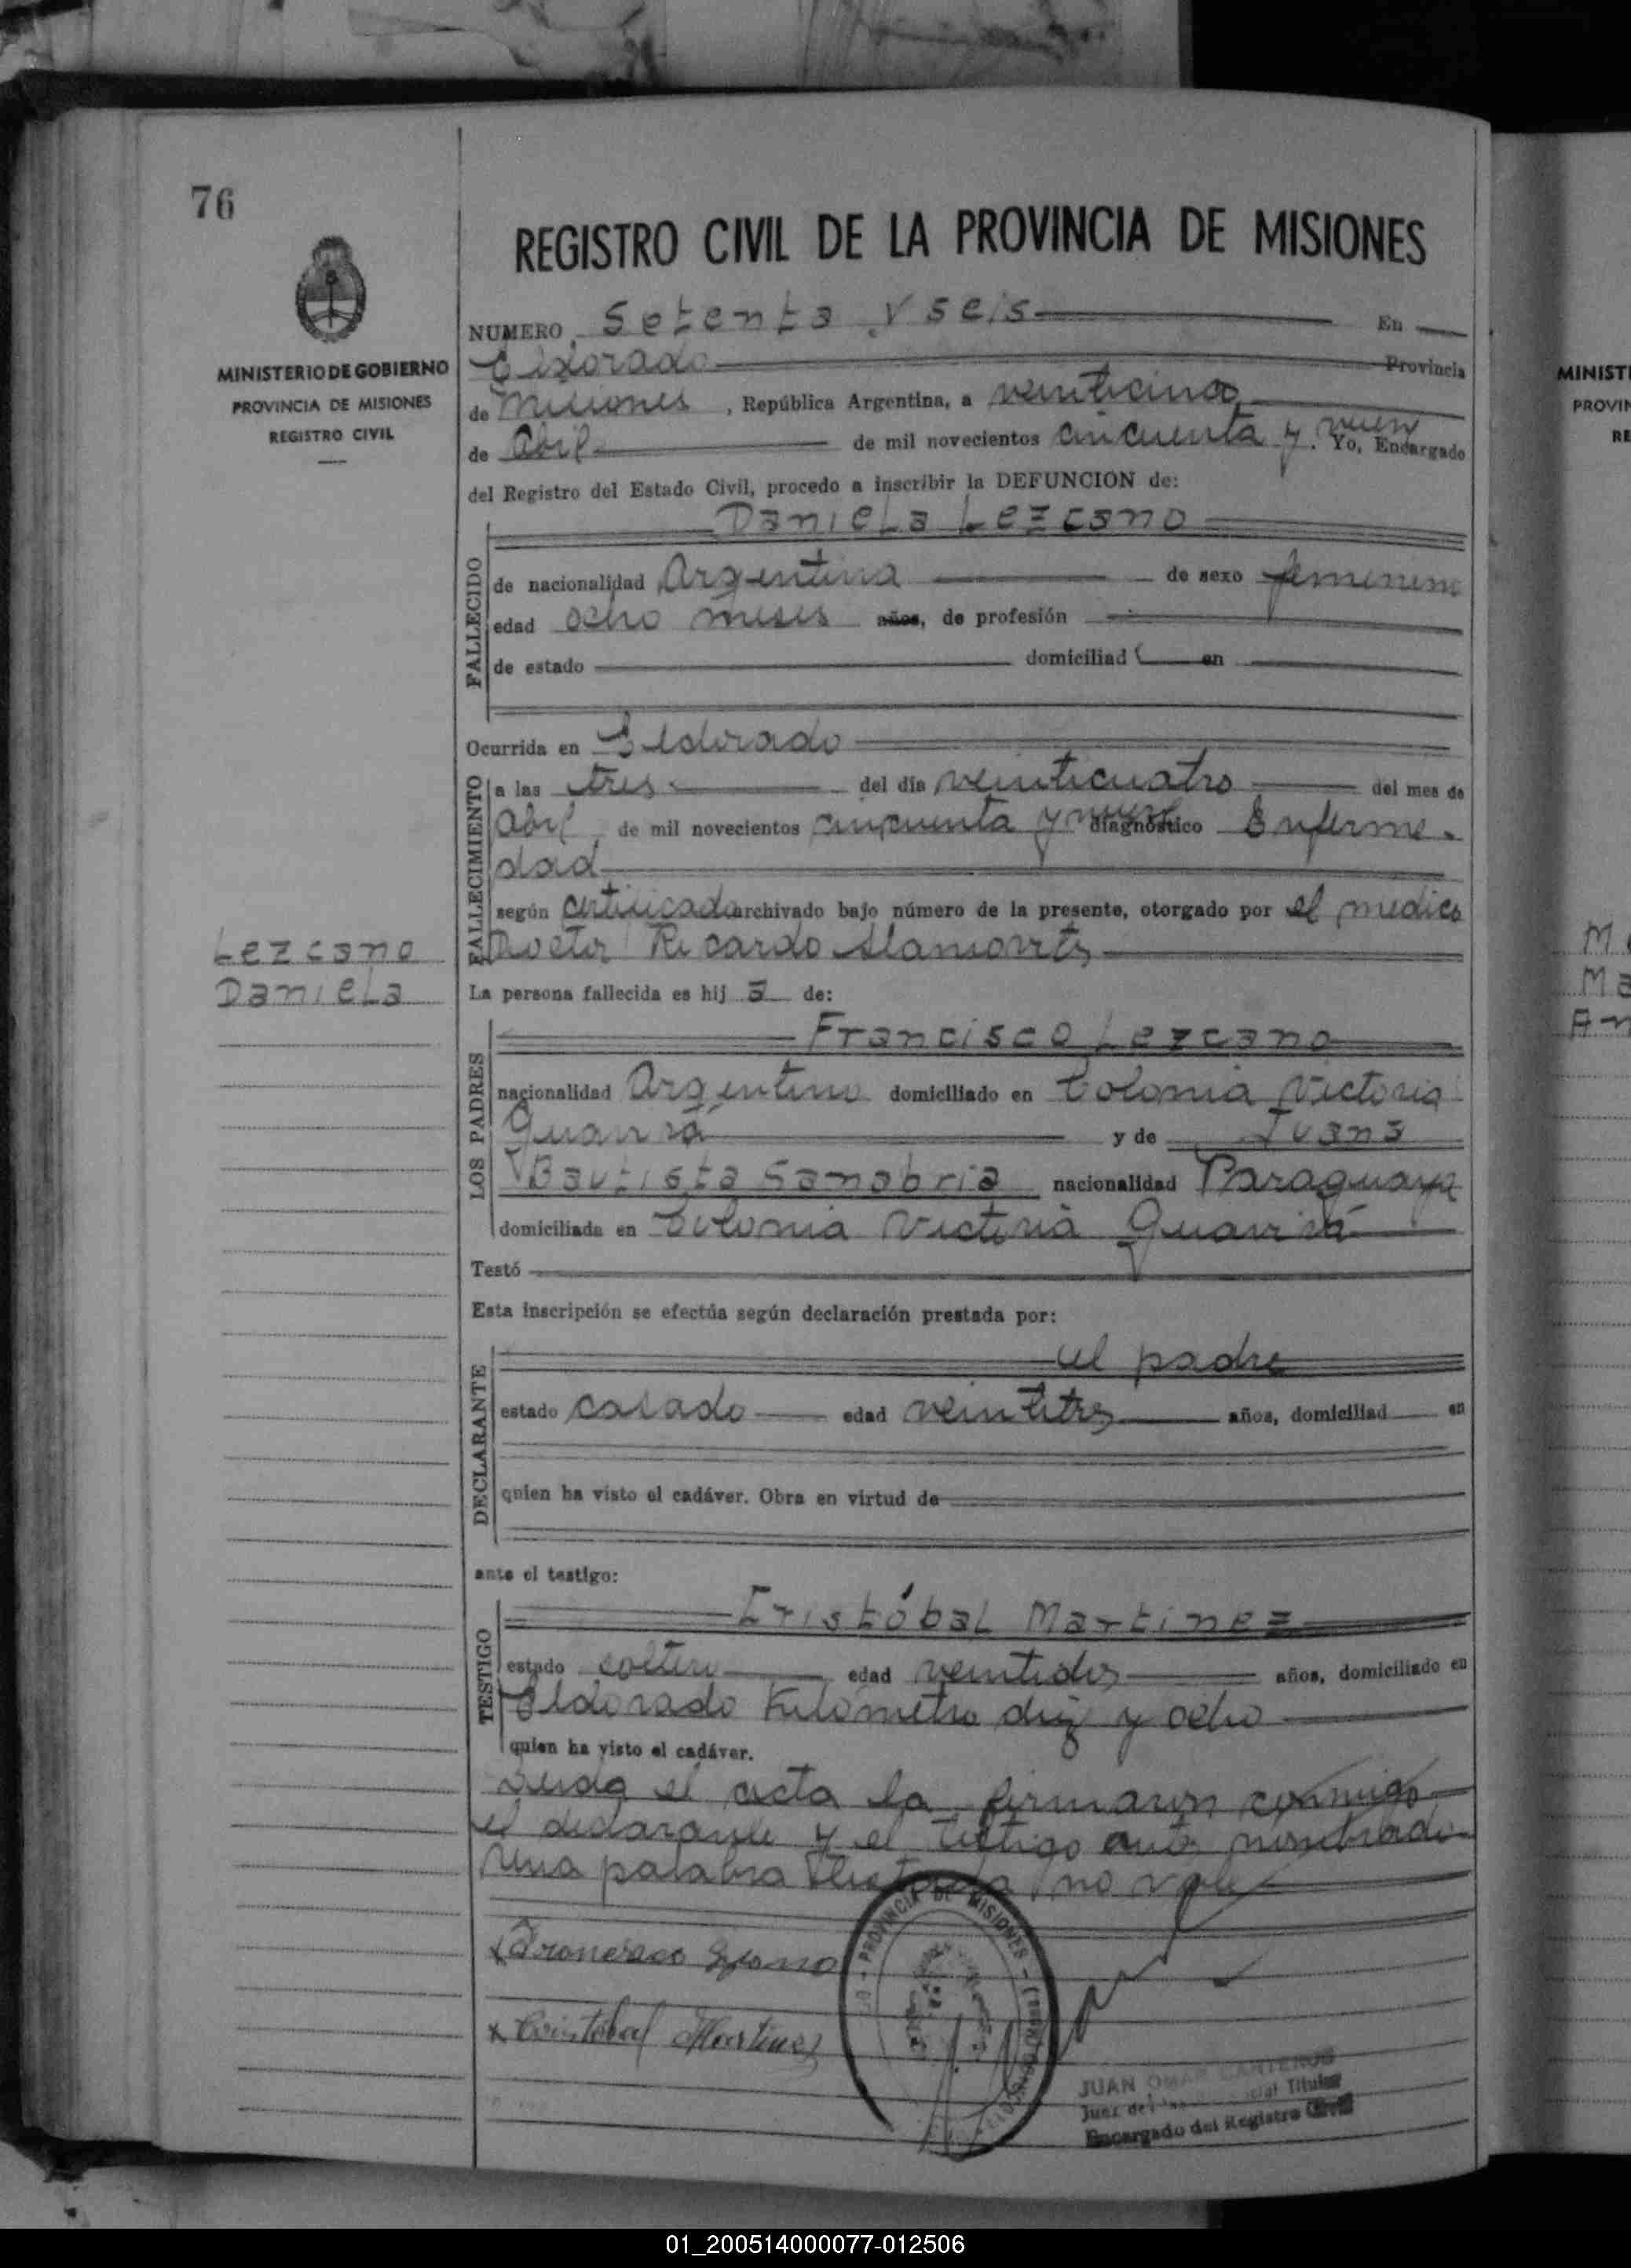 76
REGISTRO CIVIL DE LA PROVINCIA DE MISIONES
MINISTERIO DE GOBIERNO
PROVINCIA DE MISIONES
REGISTRO CIVIL
NUMERO Setenta y seis En
Eldorado Provincia
de Misiones, República Argentina, a veinticinco
de Abril de mil novecientos cincuenta y nueve. Yo, Encargado
del Registro del Estado Civil, procedo a inscribir la DEFUNCION de:
Daniela Lezcano
FALLECIDO
de nacionalidad Argentina de sexo femenino
edad ocho meses años, de profesión
de estado domiciliad en
Ocurrida en Eldorado
FALLECIMIENTO
a las tres del día veinticuatro del mes de
Abril de mil novecientos cincuenta y nueve diagnóstico Enferme-
dad
según certificado archivado bajo número de la presente, otorgado por el medico
Doctor Ricardo
Lezcano
Daniela
La persona fallecida es hij a de:
LOS PADRES
Francisco Lezcano
nacionalidad Argentino domiciliado en Colonia Victoria
y de Juana
Bautista Sanabria nacionalidad Paraguaya
domiciliada en Colonia Victoria
Testó
Esta inscripción se efectúa según declaración prestada por:
DECLARANTE
el padre
estado casado edad veintitres años, domiciliad en
quien ha visto el cadáver. Obra en virtud de
ante el testigo:
TESTIGO
Cristóbal Martinez
estado soltero edad veintidos años, domiciliado en
Eldorado Kilómetro diez y ocho
quien ha visto el cadáver.
Leida el acta la firmaron conmigo
el declarante y el testigo ante nombrado
Una palabra no vale
x Francisco Lezcano
x Cristobal Martinez
PROVINCIA DE MISIONES
JUAN OMAR CANTEROS
Juez de Titular
Encargado del Registro Civil
MINIST
PROVIN
RE
M
Ma
An
01_200514000077-012506